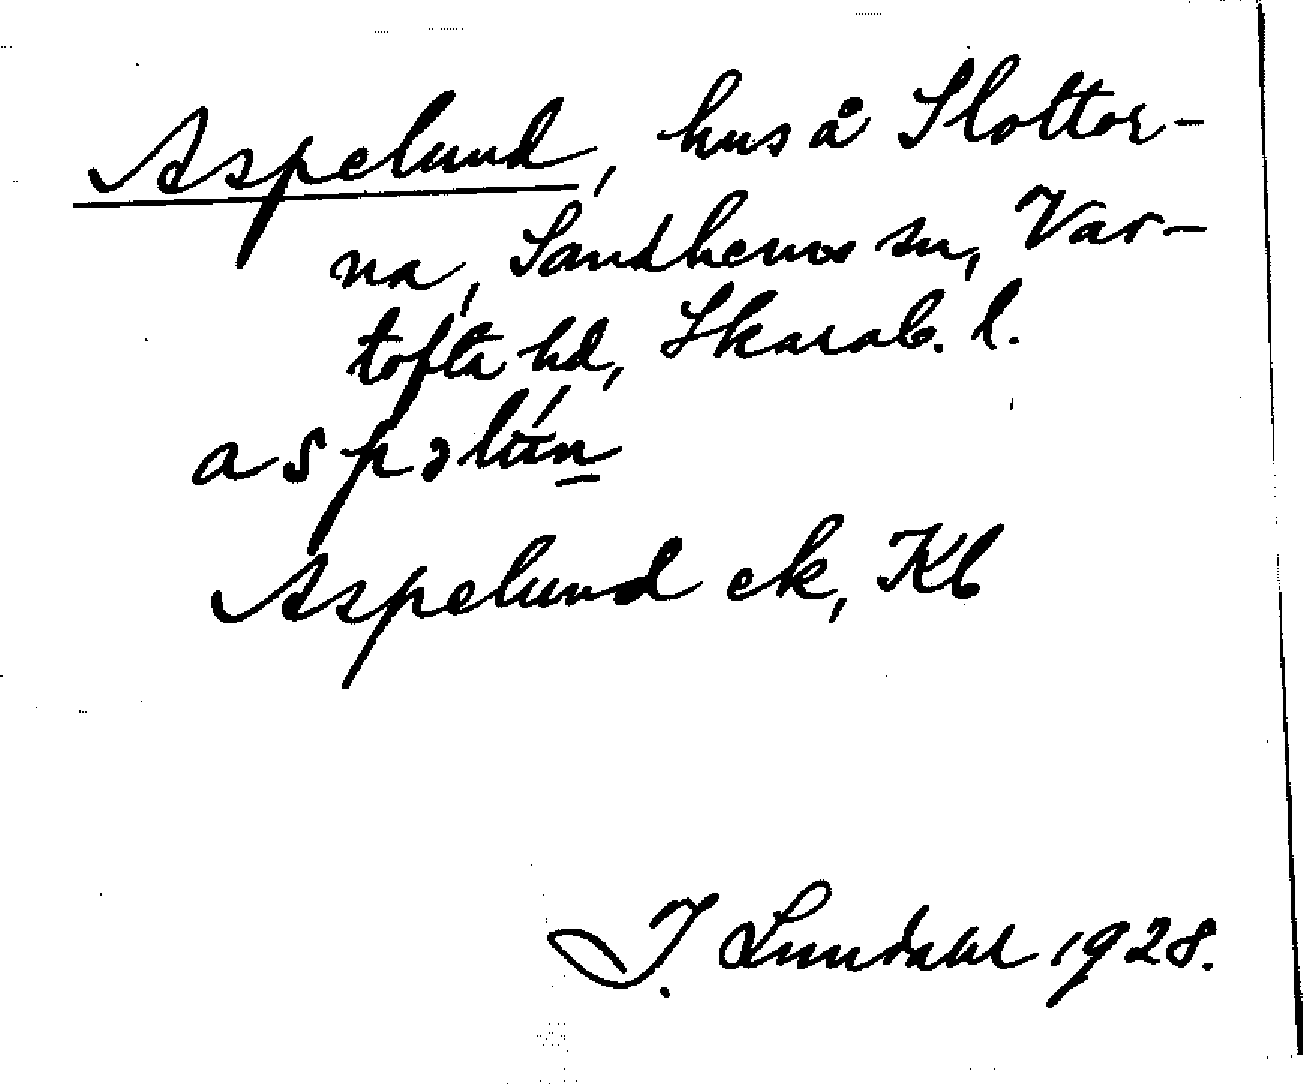 Aspelund, hus å Slottor-
na, Sandhems sn, Var-
tofta hd, Skarab. l.
aspəlún
Aspelund ek, Kb
I. Lundahl 1928.